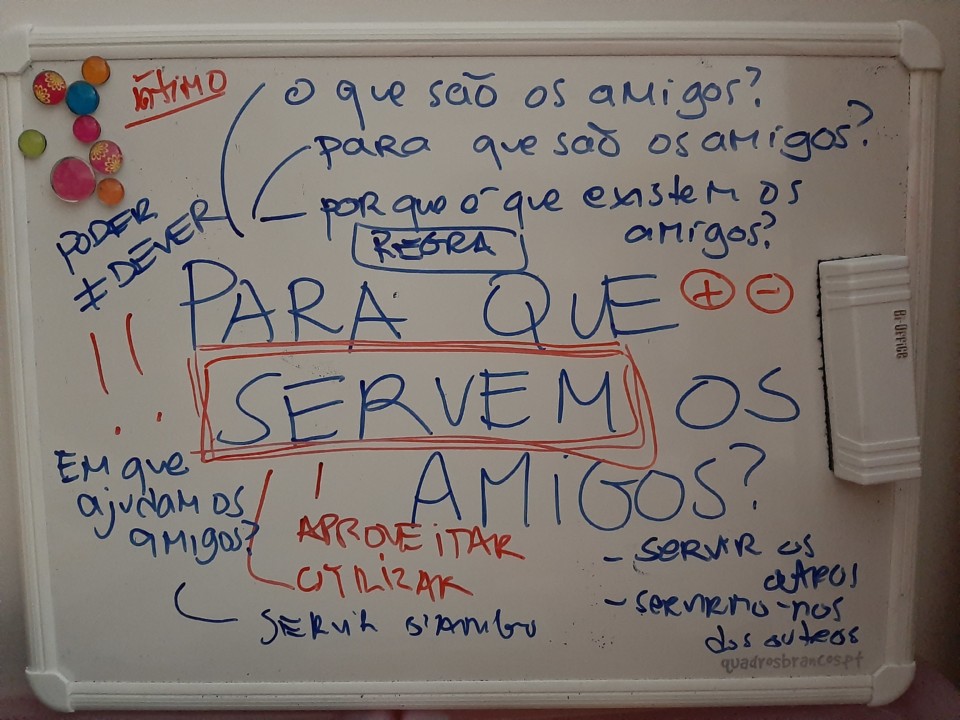 ÍNTIMO
O que são os amigos?
para que são os amigos?
porque é que existem os
amigos?
PODER
≠ DEVER
REGRA
PARA QUE + -
SERVEM OS
AMIGOS?
!!
Em que
ajudam os
amigos?
APROVEITAR
UTILIZAR
SERVIR
- SERVIR os
outros
- SERVIRMO-nos
dos outros
Bi-Office
quadrosbrancos.pt